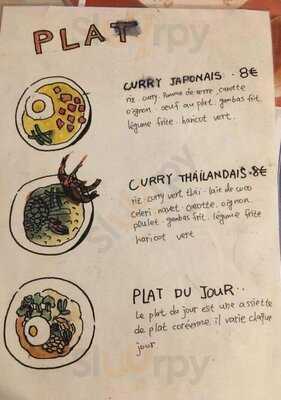 PLAT
CURRY JAPONAIS . 8€
riz . curry. pomme de terre , carotte
oignon , oeuf au plat . gambas frit.
légume frite . haricot vert .
CURRY THAÏLANDAIS . 8€
riz . curry vert thai . lait de coco
celeri . navet . carotte . oignon .
poulet . gambas frit . légume frite
haricot vert
PLAT DU JOUR ..
Le plat du jour est une assiette
de plat coréenne . il varie chaque
jour
sluurpy